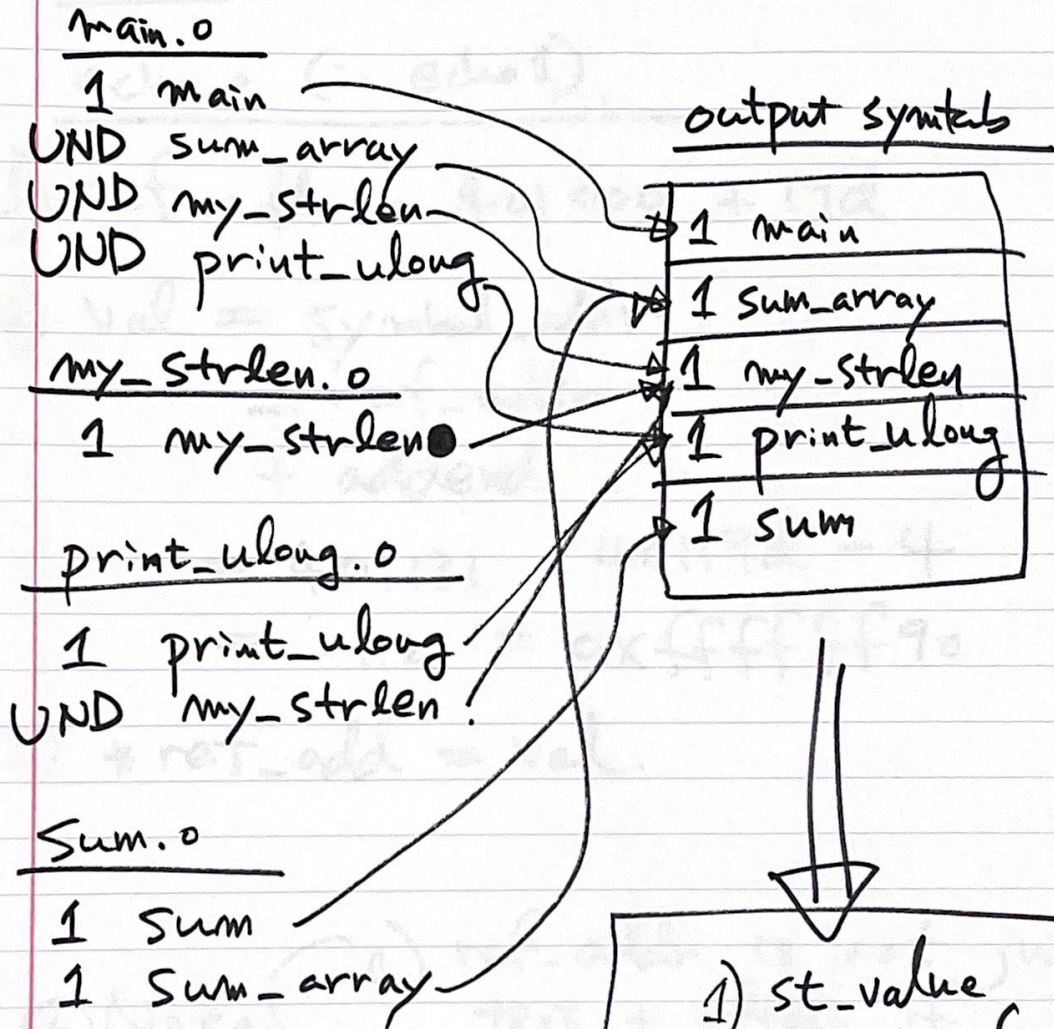 main.o
1 main
UND sum_array
UND my_strlen
UND print_ulong
my_strlen.o
1 my_strlen
print_ulong.o
1 print_ulong
UND my_strlen
sum.o
1 sum
1 sum_array
output symtab
1 main
1 sum_array
1 my_strlen
1 print_ulong
1 sum
1) st_value